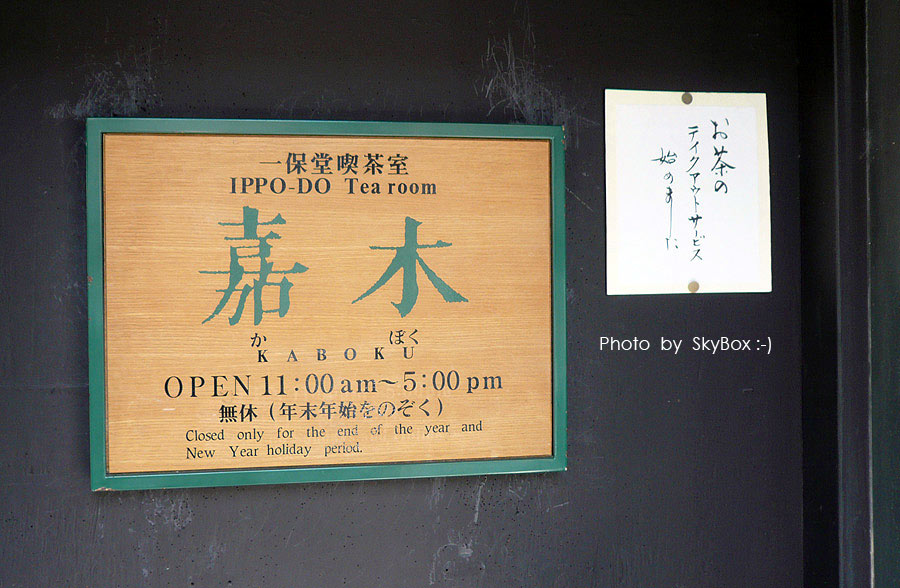 一保堂喫茶室
IPPO-DO Tea room
嘉木
か ぼく
KABOKU
OPEN 11:00 am～5:00 pm
無休（年末年始をのぞく）
Closed only for the end of the year and
New Year holiday period.
お茶の
テイクアウトサービス
始めました
Photo by SkyBox :-)